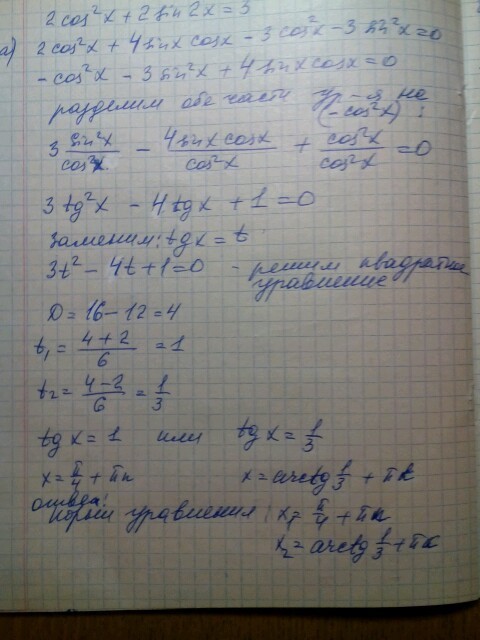 2cos²x + 2sin2x = 3
а) 2cos²x + 4sinx cosx - 3cos²x - 3sin²x = 0
-cos²x - 3sin²x + 4sinx cosx = 0
разделим обе части ур-я на (-cos²x):
3 sin²x/cos²x - 4sinx cosx/cos²x + cos²x/cos²x = 0
3tg²x - 4tgx + 1 = 0
Заменим: tgx = t
3t² - 4t + 1 = 0 - решим квадратное
уравнение
D = 16 - 12 = 4
t₁ = (4+2)/6 = 1
t₂ = (4-2)/6 = 1/3
tgx = 1 или tgx = 1/3
x = π/4 + πn x = arctg 1/3 + πk
ответ:
корни уравнения: x₁ = π/4 + πn
x₂ = arctg 1/3 + πk